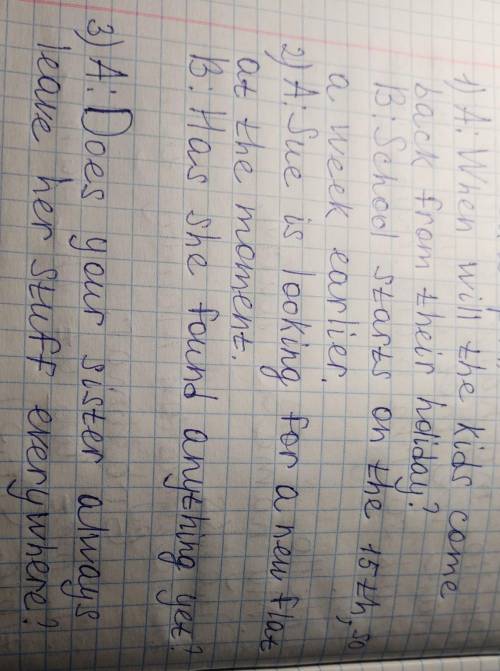 1) A: When will the kids come
back from their holiday?
B: School starts on the 15th, so
a week earlier.
2) A: Sue is looking for a new flat
at the moment.
B: Has she found anything yet?
3) A: Does your sister always
leave her stuff everywhere?